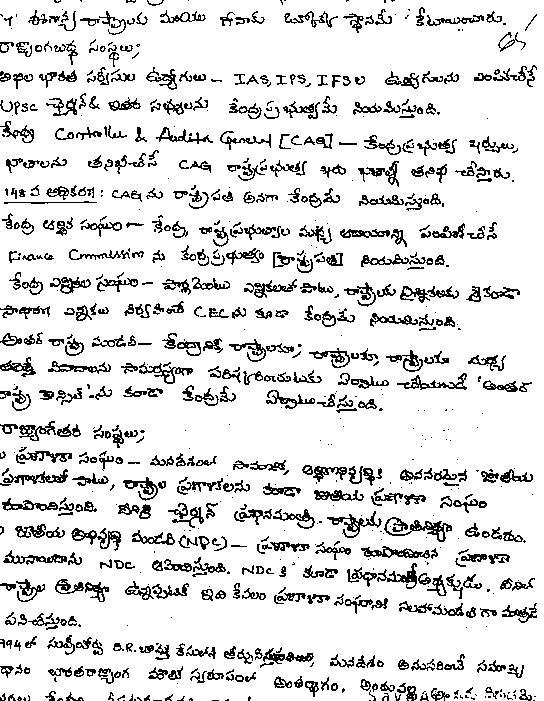 ఈశాన్య రాష్ట్రాలకు మరియు గోవాకు ఒక్కొక్క స్థానమే కేటాయించారు.
రాజ్యాంగబద్ధ సంస్థలు;
అఖిల భారత సర్వీసుల ఉద్యోగులు - IAS, IPS, IFSల ఉద్యోగులను ఎంపికచేసే
UPSC ఛైర్మన్‌ & ఇతర సభ్యులను కేంద్రప్రభుత్వమే నియమిస్తుంది.
కేంద్ర Controller & Auditor General [CAG] - కేంద్రప్రభుత్వ ఖర్చులు,
ఖాతాలను తనిఖీచేసే CAG రాష్ట్రప్రభుత్వ తనిఖీ చేస్తారు.
148 వ అధికరణ : CAG ను రాష్ట్రపతి అనగా కేంద్రమే నియమిస్తుంది.
కేంద్ర ఆర్థిక సంఘం - కేంద్ర, రాష్ట్రప్రభుత్వాల మధ్య ఆదాయాన్ని పంపిణీచేసే
Finance Commission ను కేంద్రప్రభుత్వం [రాష్ట్రపతి] నియమిస్తుంది.
కేంద్ర ఎన్నికల సంఘం - పార్లమెంటు ఎన్నికలతో పాటు, రాష్ట్రాలకు
ఎన్నికలు నిర్వహించే CEC ను కూడా కేంద్రమే నియమిస్తుంది.
అంతర్ రాష్ట్ర మండలి - కేంద్రానికి, రాష్ట్రాలకూ; రాష్ట్రాలకు, రాష్ట్రాలకూ మధ్య
తలెత్తే వివాదాలను సామరస్యంగా పరిష్కరించుటకు ఏర్పాటు చేయబడే 'అంతర్
రాష్ట్ర కౌన్సిల్'ను కూడా కేంద్రమే ఏర్పాటుచేస్తుంది.
రాజ్యాంగేతర సంస్థలు;
ప్రణాళికా సంఘం - మనదేశంలో సామాజిక, ఆర్థికాభివృద్ధికి అవసరమైన జాతీయ
ప్రణాళికలతో పాటు, రాష్ట్రాల ప్రణాళికలను కూడా జాతీయ ప్రణాళికా సంఘం
రూపొందిస్తుంది. దీనికి ఛైర్మన్ ప్రధానమంత్రి. రాష్ట్రాలకు ప్రాతినిధ్యం ఉండదు.
జాతీయ అభివృద్ధి మండలి (NDC) - ప్రణాళికా సంఘం రూపొందించిన ప్రణాళికా
ముసాయిదాను NDC ఆమోదిస్తుంది. NDC కి కూడా ప్రధానమంత్రే అధ్యక్షుడు. దీనిలో
రాష్ట్రాల ప్రాతినిధ్యం ఉన్నప్పటికీ ఇది కేవలం ప్రణాళికా సంఘానికి సలహామండలి గా మాత్రమే
పనిచేస్తుంది.
1994 లో సుప్రీంకోర్టు S.R. బొమ్మై కేసులో తీర్పునిస్తూ, మనదేశం అనుసరించే సమాఖ్య
విధానం భారతరాజ్యాంగ మౌలిక స్వరూపంలో అంతర్భాగం. అందువల్ల